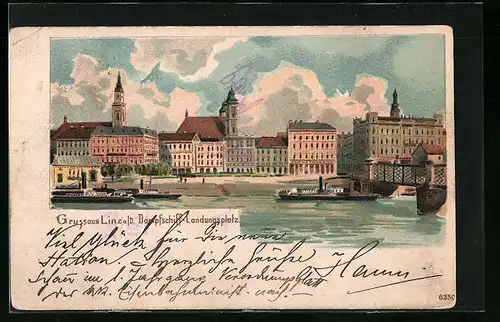 Gruss aus Linz a/D. Dampfschiff-Landungsplatz.
Viel Glück für Die neue
Station. Herzliche Grüße
Schau im 1. Jahrgang Verordnungsblatt
der k.k. Eisenbahnminist. nach!
6250